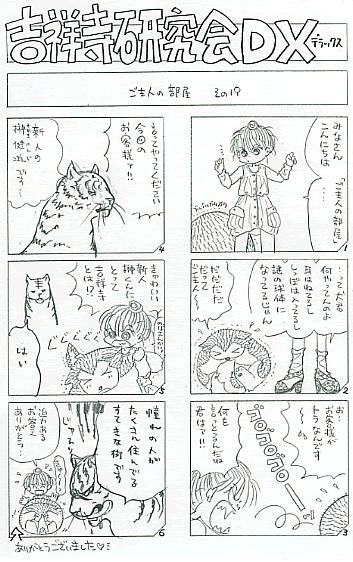 吉祥寺研究会DX
デラックス
ご主人の部屋 その1?
みなさん
こんにちは
「ご主人の部屋」
です
1
…って犬君
何やってんのよ
耳はねてるし
しっぽは入ってるし
謎の球体に
なってるじゃん
だだだだ
だって
2
お…
お客様が
トラなんです
〜〜
何を
言っとるんだね
君は?!!
3
言ってやってください
今回の
お客様ァ!!
新人の
榊健滋
です…
4
じゃあ
新人
榊くんに
とって
吉祥寺
とは!?
じりじり
はい
5
憧れの人が
たくさん住んでる
すてきな街です
迫力ある
お客さん
ありがとう…
6
ありがとうございました♡